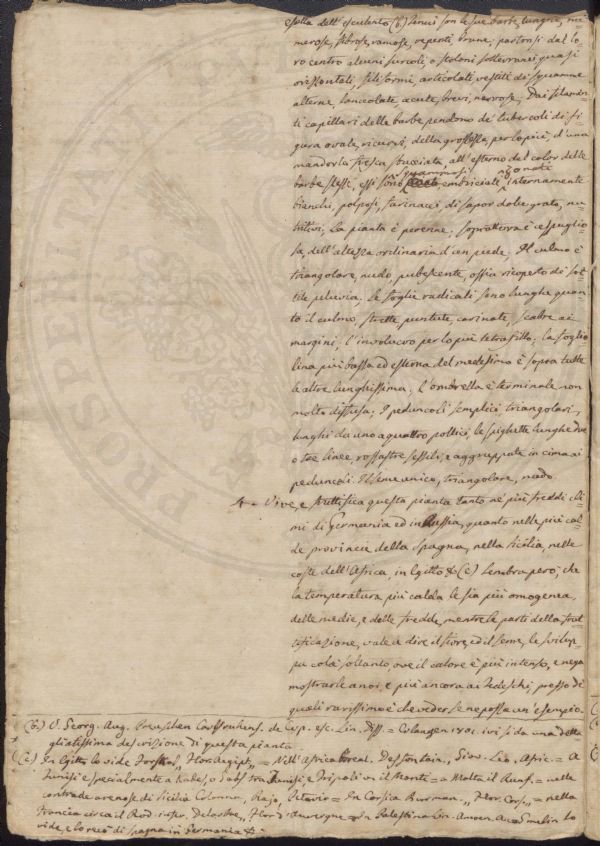 esatta dell'esculento (b.) Tenui son le sue barbe, lunghe, nu=
merose, fibrose, ramose, repenti, brune; partonsi dal lo=
ro centro alcuni surcoli, o stoloni sotterranei quasi
orizzontali, filiformi, articolati, vestiti di squamme
alterne, lanceolate, acute, brevi, nervose. Dai filamen=
ti capillari delle barbe pendono de' tubercoli di fi=
gura ovale, ricurvi, della grossezza, per lo più, d'una
mandorla fresca sbucciata, all'esterno del color delle
squammosi zonate
barbe stesse, essi sono embriciate, internamente
bianchi, polposi, farinacei di sapor dolce grato, nu=
tritivi. La pianta è perenne; soprattterra è cespuglio=
sa, dell'altezza ordinaria d'un piede. Il culmo è
triangolare, nudo, pubescente, ossia ricoperto di sot=
tile peluvia. Le foglie radicali sono lunghe quan=
to il culmo, strette puntute, carinate, scabre ai
margini, l'involucro per lo più tetrafillo; la foglio=
lina più bassa ed esterna del medesimo è sopra tutte
le altre lunghissima; l'ombrella è terminale non
molto diffusa; I peduncoli semplici, triangolari,
lunghi da uno a quattro pollici, le spighette lunghe due
o tre linee, rossastre sessili, e aggruppate in cima ai
peduncoli. Il seme unico, triangolare, nudo.
4. Vive, e fruttifica questa pianta tanto ne' più freddi cli=
mi di Germania ed in Russia, quanto nelle più cal=
de provincie della Spagna, nella Sicilia, nelle
coste dell'Africa, in Egitto & (c) Sembra però, che
la temperatura più calda le sia più omogenea,
delle medie, e delle fredde, mentre le parti della frut=
tificazione, vale a dire il fiore, ed il seme, le svilup=
pa colà soltanto, ove il calore è più intenso, e nega
mostrarle a noi, e più ancora ai Tedeschi, presso di
quali rarissimo è che vederse ne possa un'esempio.
(b.) V. Georg. Aug. Preuschen Carlsruhens. de Cyp. esc. Lin. Diss. = Erlangen 1801. ivi si da una detta=
gliatissima descrizione di questa pianta
(c) In Egitto lo vide Forskol, "Flor. Aegipt." = Nell'Africa Boreal. Desfontain, Giov. Leo. Afric. = A
Tunisi e specialmente a Kabes, o Gabs tra Tunisi, e Tripoli vi il Monti = a Malta il = nelle
contrade arenose di Sicilia Colonna, Rajo, Petavir = In Corsica Burman. "Flor. Cors." = nella
Francia circa il Rod. infer. Delarbre "Flor. d'Auvergne = In Palestina Lin. Amoen. Gmelin lo
vide, e lo recò di Spagna in Germania &.